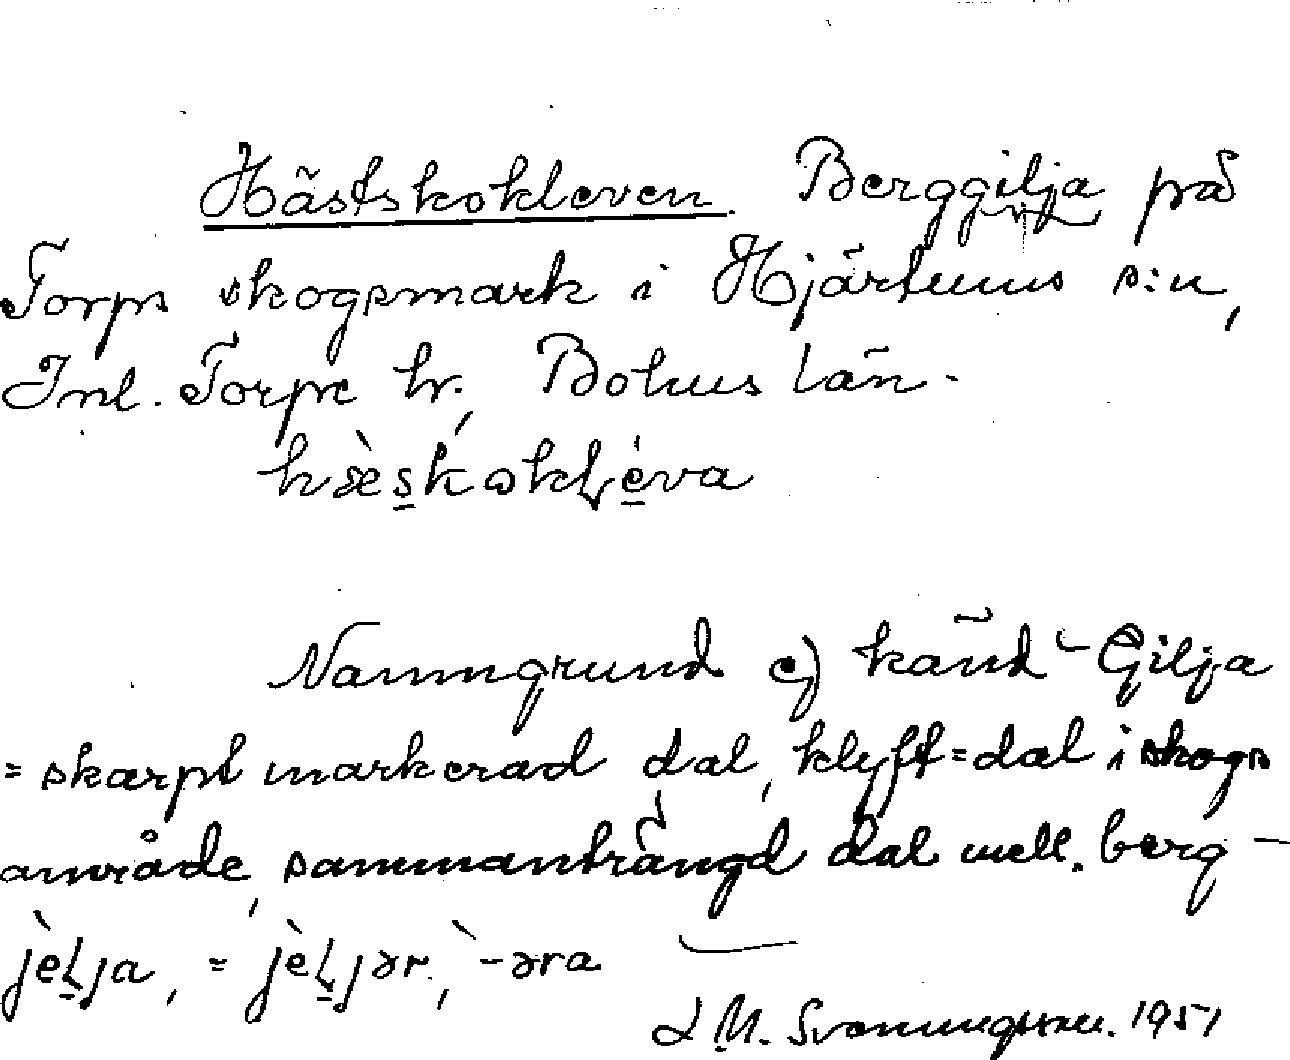 Hästskokleven. Berggilja på
Torps skogsmark i Hjärtums s:n,
Inl. Torpe hr., Bohus län.
Namngrund ej känd - Gilja
= skarpt markerad dal, klyft=dal i skogs
område, sammanträngd dal mell. berg -
jèḷja, = jèḷjər, `-əra
1951